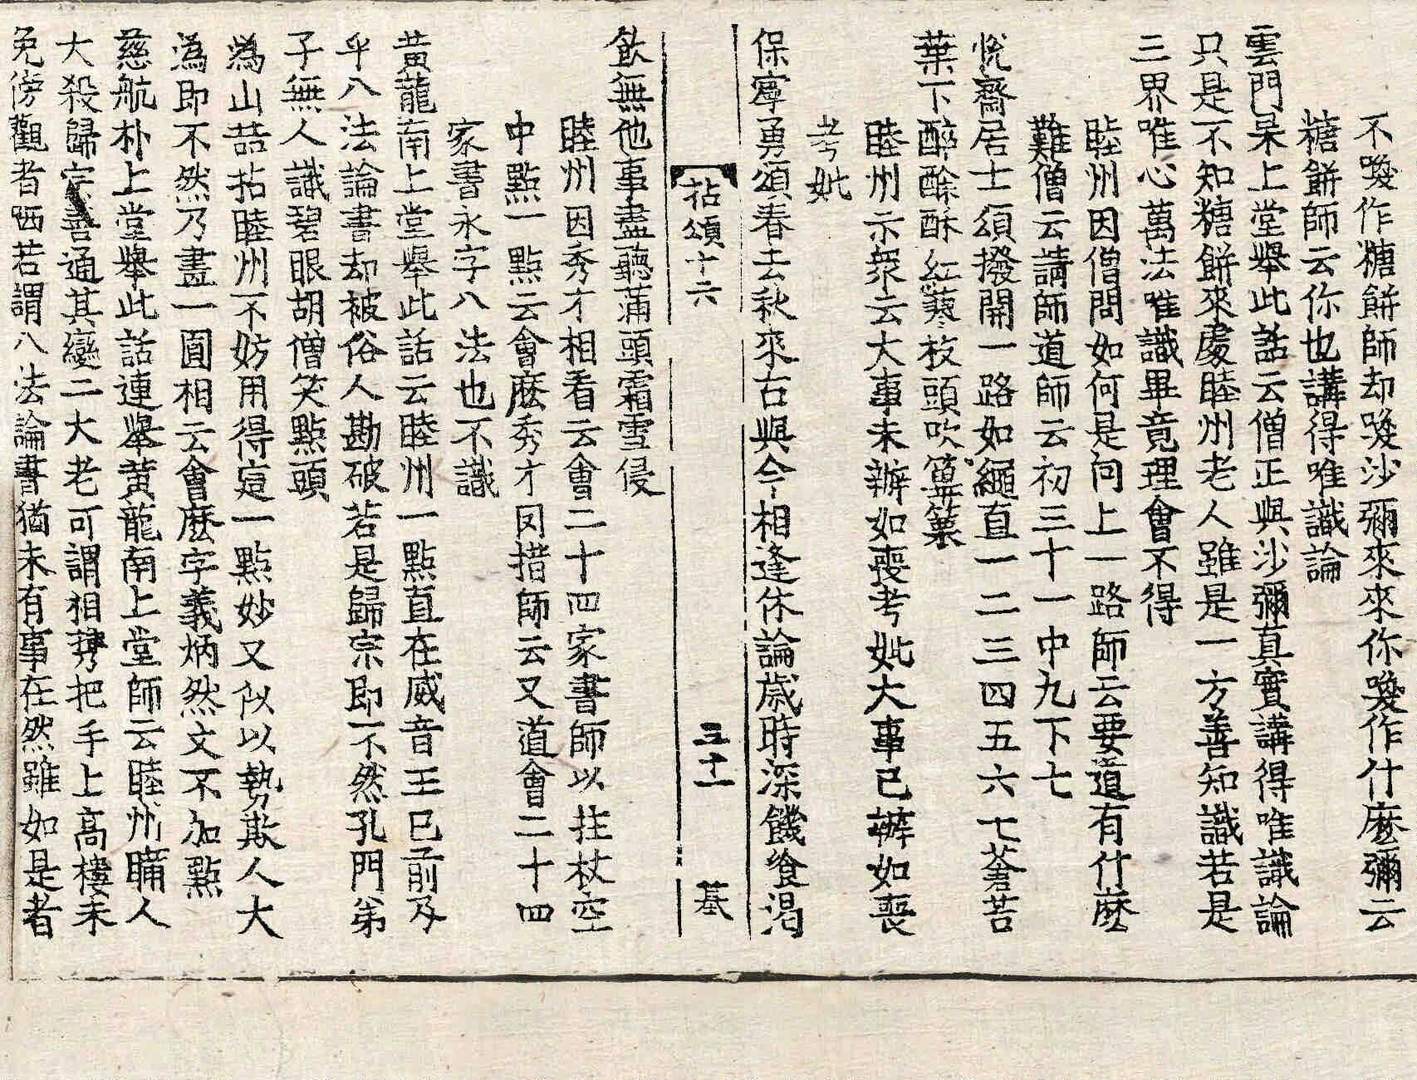 不喚作糖餅師却喚沙彌來來你喚作什麼彌云
糖餅師云你也講得唯識論
雲門杲上堂舉此話云僧正與沙彌真實講得唯識論
只是不知糖餅來處睦州老人雖是一方善知識若是
三界唯心萬法唯識畢竟理會不得
睦州因僧問如何是向上一路師云要道有什麼
難僧云請師道師云初三十一中九下七
悅齋居士頌撥開一路如繩直一二三四五六七蒼苔
葉下醉酴酥紅蓼枝頭吹篳篥
睦州示衆云大事未辦如喪考妣大事已辦如喪
考妣
保寧勇頌春去秋來古與今相逢休論歲時深饑飡渴
拈頌十六 三十一 基
飲無他事盡聽蒲頭霜雪侵
睦州因秀才相看云會二十四家書師以拄杖空
中點一點云會麼秀才罔措師云又道會二十四
家書永字八法也不識
黃龍南上堂舉此話云睦州一點直在威音王已前及
乎八法論書却被俗人勘破若是歸宗即不然孔門弟
子無人識碧眼胡僧笑點頭
溈山喆拈睦州不妨用得這一點妙又似以勢欺人大
溈即不然乃畫一圓相云會麼字義炳然文不加點
慈航朴上堂舉此話連舉黃龍南上堂師云睦州瞞人
大殺歸宗善通其變二大老可謂相携把手上高樓未
免傍觀者哂若謂八法論書猶未有事在然雖如是者